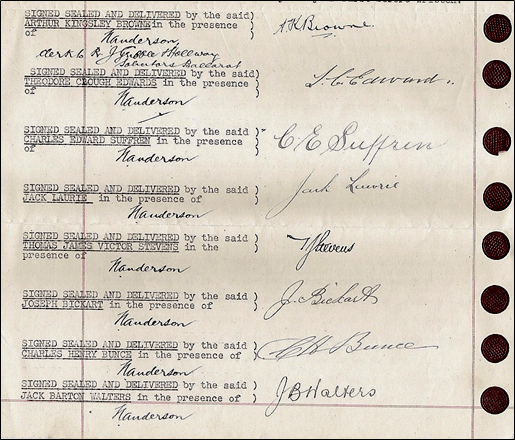 SIGNED SEALED AND DELIVERED by the said ) A K Browne
ARTHUR KINGSLEY BROWNE in the presence )
of )
Nanderson
clerk R. J. Holloway
Solicitors Ballarat
SIGNED SEALED AND DELIVERED by the said )
THEODORE CLOUGH EDWARDS in the presence ) T. C. Edwards.
of
Nanderson
SIGNED SEALED AND DELIVERED by the said )
CHARLES EDWARD SUFFREN in the presence ) C. E Suffren
of )
Nanderson
SIGNED SEALED AND DELIVERED by the said ) Jack Laurie
JACK LAURIE in the presence of )
Nanderson
SIGNED SEALED AND DELIVERED by the said )
THOMAS JAMES VICTOR STEVENS in the ) TJStevens
presence of )
Nanderson
SIGNED SEALED AND DELIVERED by the said ) J. Bickart
JOSEPH BICKART in the presence of )
Nanderson
SIGNED SEALED AND DELIVERED by the said )
CHARLES HENRY BUNCE in the presence of ) C H Bunce
Nanderson
SIGNED SEALED AND DELIVERED by the said )
JACK BARTON WALTERS in the presence of ) J B Walters
Nanderson